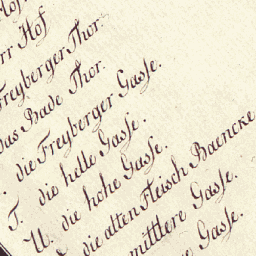 Hof.
rr Hof
Freyberger Thor.
das Bade Thor.
die Freyberger Gasse.
T. die helle Gasse.
U. die hohe Gasse.
die alten Fleisch Baencke
mittlere Gasse.
Gasse.